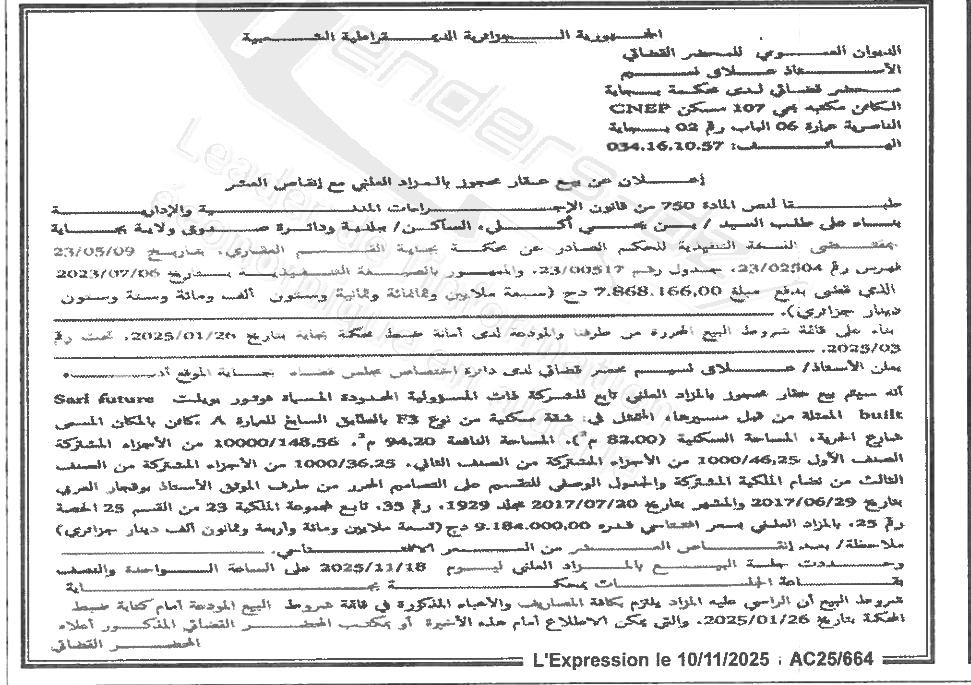 الجمهورية الجزائرية الديمقراطية الشعبية
الديوان العمومي للمحضر القضائي
الأستاذ علاق نسيم
محضر قضائي لدى محكمة بجاية
الكائن مكتبه بحي 107 مسكن CNEP
الناصرية عمارة 06 الباب رقم 02 بجاية
الهاتف: 034.16.10.57
إعلان عن بيع عقار محجوز بالمزاد العلني مع إنقاص العشر
طبقا لنص المادة 750 من قانون الإجراءات المدنية والإدارية
بناء على طلب السيد / بن يحيى أكلي، الساكن/ بلدية ودائرة صدوق ولاية بجاية
بمقتضى النسخة التنفيذية للحكم الصادر عن محكمة بجاية القسم العقاري، بتاريخ 23/05/09
فهرس رقم 23/02504، جدول رقم 23/00517، والممهور بالصيغة التنفيذية بتاريخ 2023/07/06
الذي قضى بدفع مبلغ 7.868.166,00 دج (سبعة ملايين وثمانمائة وثمانية وستون ألف ومائة وستة وستون
دينار جزائري).
بناء على قائمة شروط البيع المحررة من طرفنا والمودعة لدى أمانة ضبط محكمة بجاية بتاريخ 2025/01/26، تحت رقم
2025/03.
يعلن الأستاذ/ علاق نسيم محضر قضائي لدى دائرة اختصاص مجلس قضاء بجاية الموقع أدناه
أنه سيتم بيع عقار محجوز بالمزاد العلني تابع للشركة ذات المسؤولية المحدودة المسماة فوتور بويلت Sarl future
built الممثلة من قبل مسيرها، المتمثل في: شقة سكنية من نوع F3 بالطابق السابع للعمارة A كائن بالمكان المسمى
شارع الحرية، المساحة السكنية (82.00 م²)، المساحة النافعة 94,20 م²، 10000/148,56 من الأجزاء المشتركة
الصنف الأول 1000/46,25 من الأجزاء المشتركة من الصنف الثاني، 1000/36,25 من الأجزاء المشتركة من الصنف
الثالث من نظام الملكية المشتركة والجدول الوصفي للتقسيم على التصاميم المحرر من طرف الموثق الأستاذ بوقجار العربي
بتاريخ 2017/06/29 والمشهر بتاريخ 2017/07/20 مجلد 1929، رقم 35، تابع مجموعة الملكية 23 من القسم 25 الحصة
رقم 25، بالمزاد العلني بسعر افتتاحي قدره 9.184.000,00 دج (تسعة ملايين ومائة وأربعة وثمانون ألف دينار جزائري)
ملاحظة/ بعد إنقاص العشر من السعر الافتتاحي.
وحددت جلسة البيع بالمزاد العلني ليوم 2025/11/18 على الساعة الواحدة والنصف
بقاعة الجلسات بمحكمة بجاية
شروط البيع أن الراسي عليه المزاد يلتزم بكافة المصاريف والأعباء المذكورة في قائمة شروط البيع المودعة أمام كتابة ضبط
المحكمة بتاريخ 2025/01/26، والتي يمكن الاطلاع أمام هذه الأخيرة أو بمكتب المحضر القضائي المذكور أعلاه
المحضر القضائي
L'Expression le 10/11/2025 : AC25/664